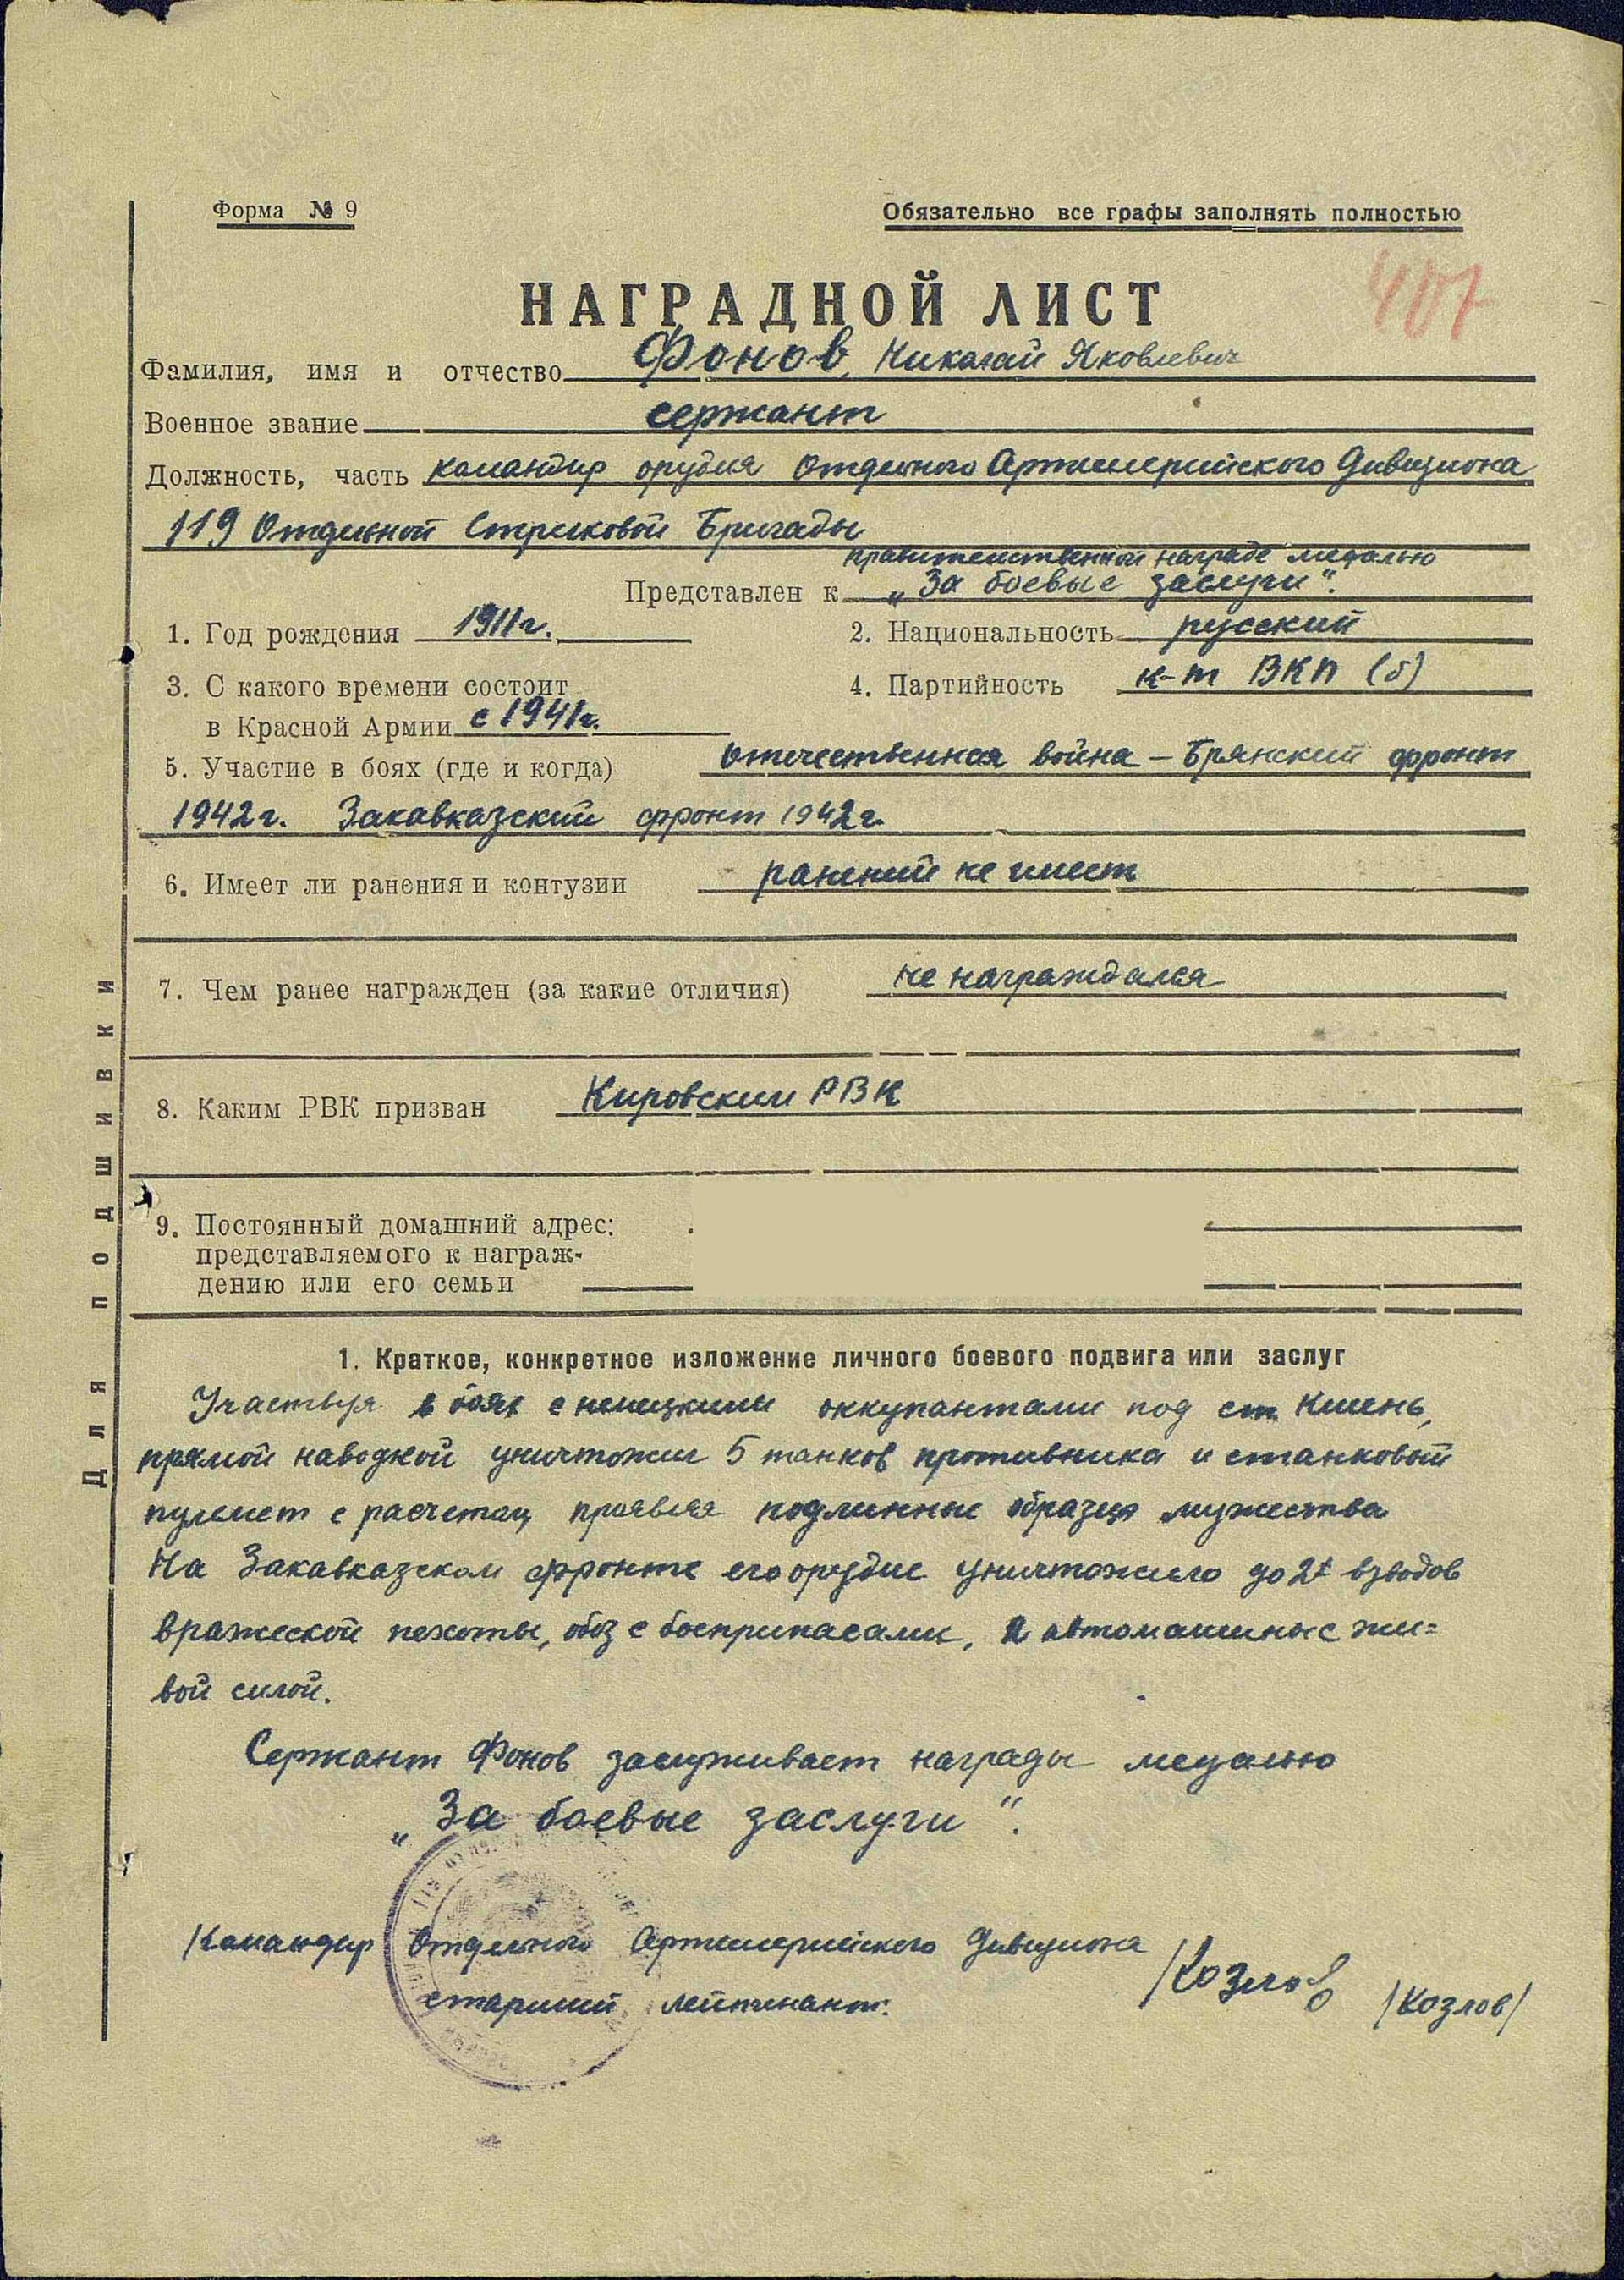 Форма № 9
Обязательно все графы заполнять полностью
407
НАГРАДНОЙ ЛИСТ
Фамилия, имя и отчество Фонов, Николай Яковлевич
Военное звание сержант
Должность, часть командир орудия Отдельного Артиллерийского Дивизиона
119 Отдельной Стрелковой Бригады
правительственной награде медалью
Представлен к „За боевые заслуги".
1. Год рождения 1911г.
2. Национальность русский
3. С какого времени состоит
в Красной Армии с 1941г.
4. Партийность к-т ВКП (б)
5. Участие в боях (где и когда) Отечественная война – Брянский фронт
1942г. Закавказский фронт 1942г.
6. Имеет ли ранения и контузии ранений не имеет
7. Чем ранее награжден (за какие отличия) не награждался
8. Каким РВК призван Кировским РВК
9. Постоянный домашний адрес:
представляемого к награж-
дению или его семьи
Для подшивки
1. Краткое, конкретное изложение личного боевого подвига или заслуг
Участвуя в боях с немецкими оккупантами под ст. Кшень,
прямой наводкой уничтожил 5 танков противника и станковый
пулемет с расчетом, проявляя подлинные образцы мужества
На Закавказском фронте его орудие уничтожило до 2х взводов
вражеской пехоты, обоз с боеприпасами, 2 автомашины с жи=
вой силой.
Сержант Фонов заслуживает награды медалью
„За боевые заслуги".
Командир Отдельного Артиллерийского Дивизиона
старший лейтенант:
Козлов /Козлов/